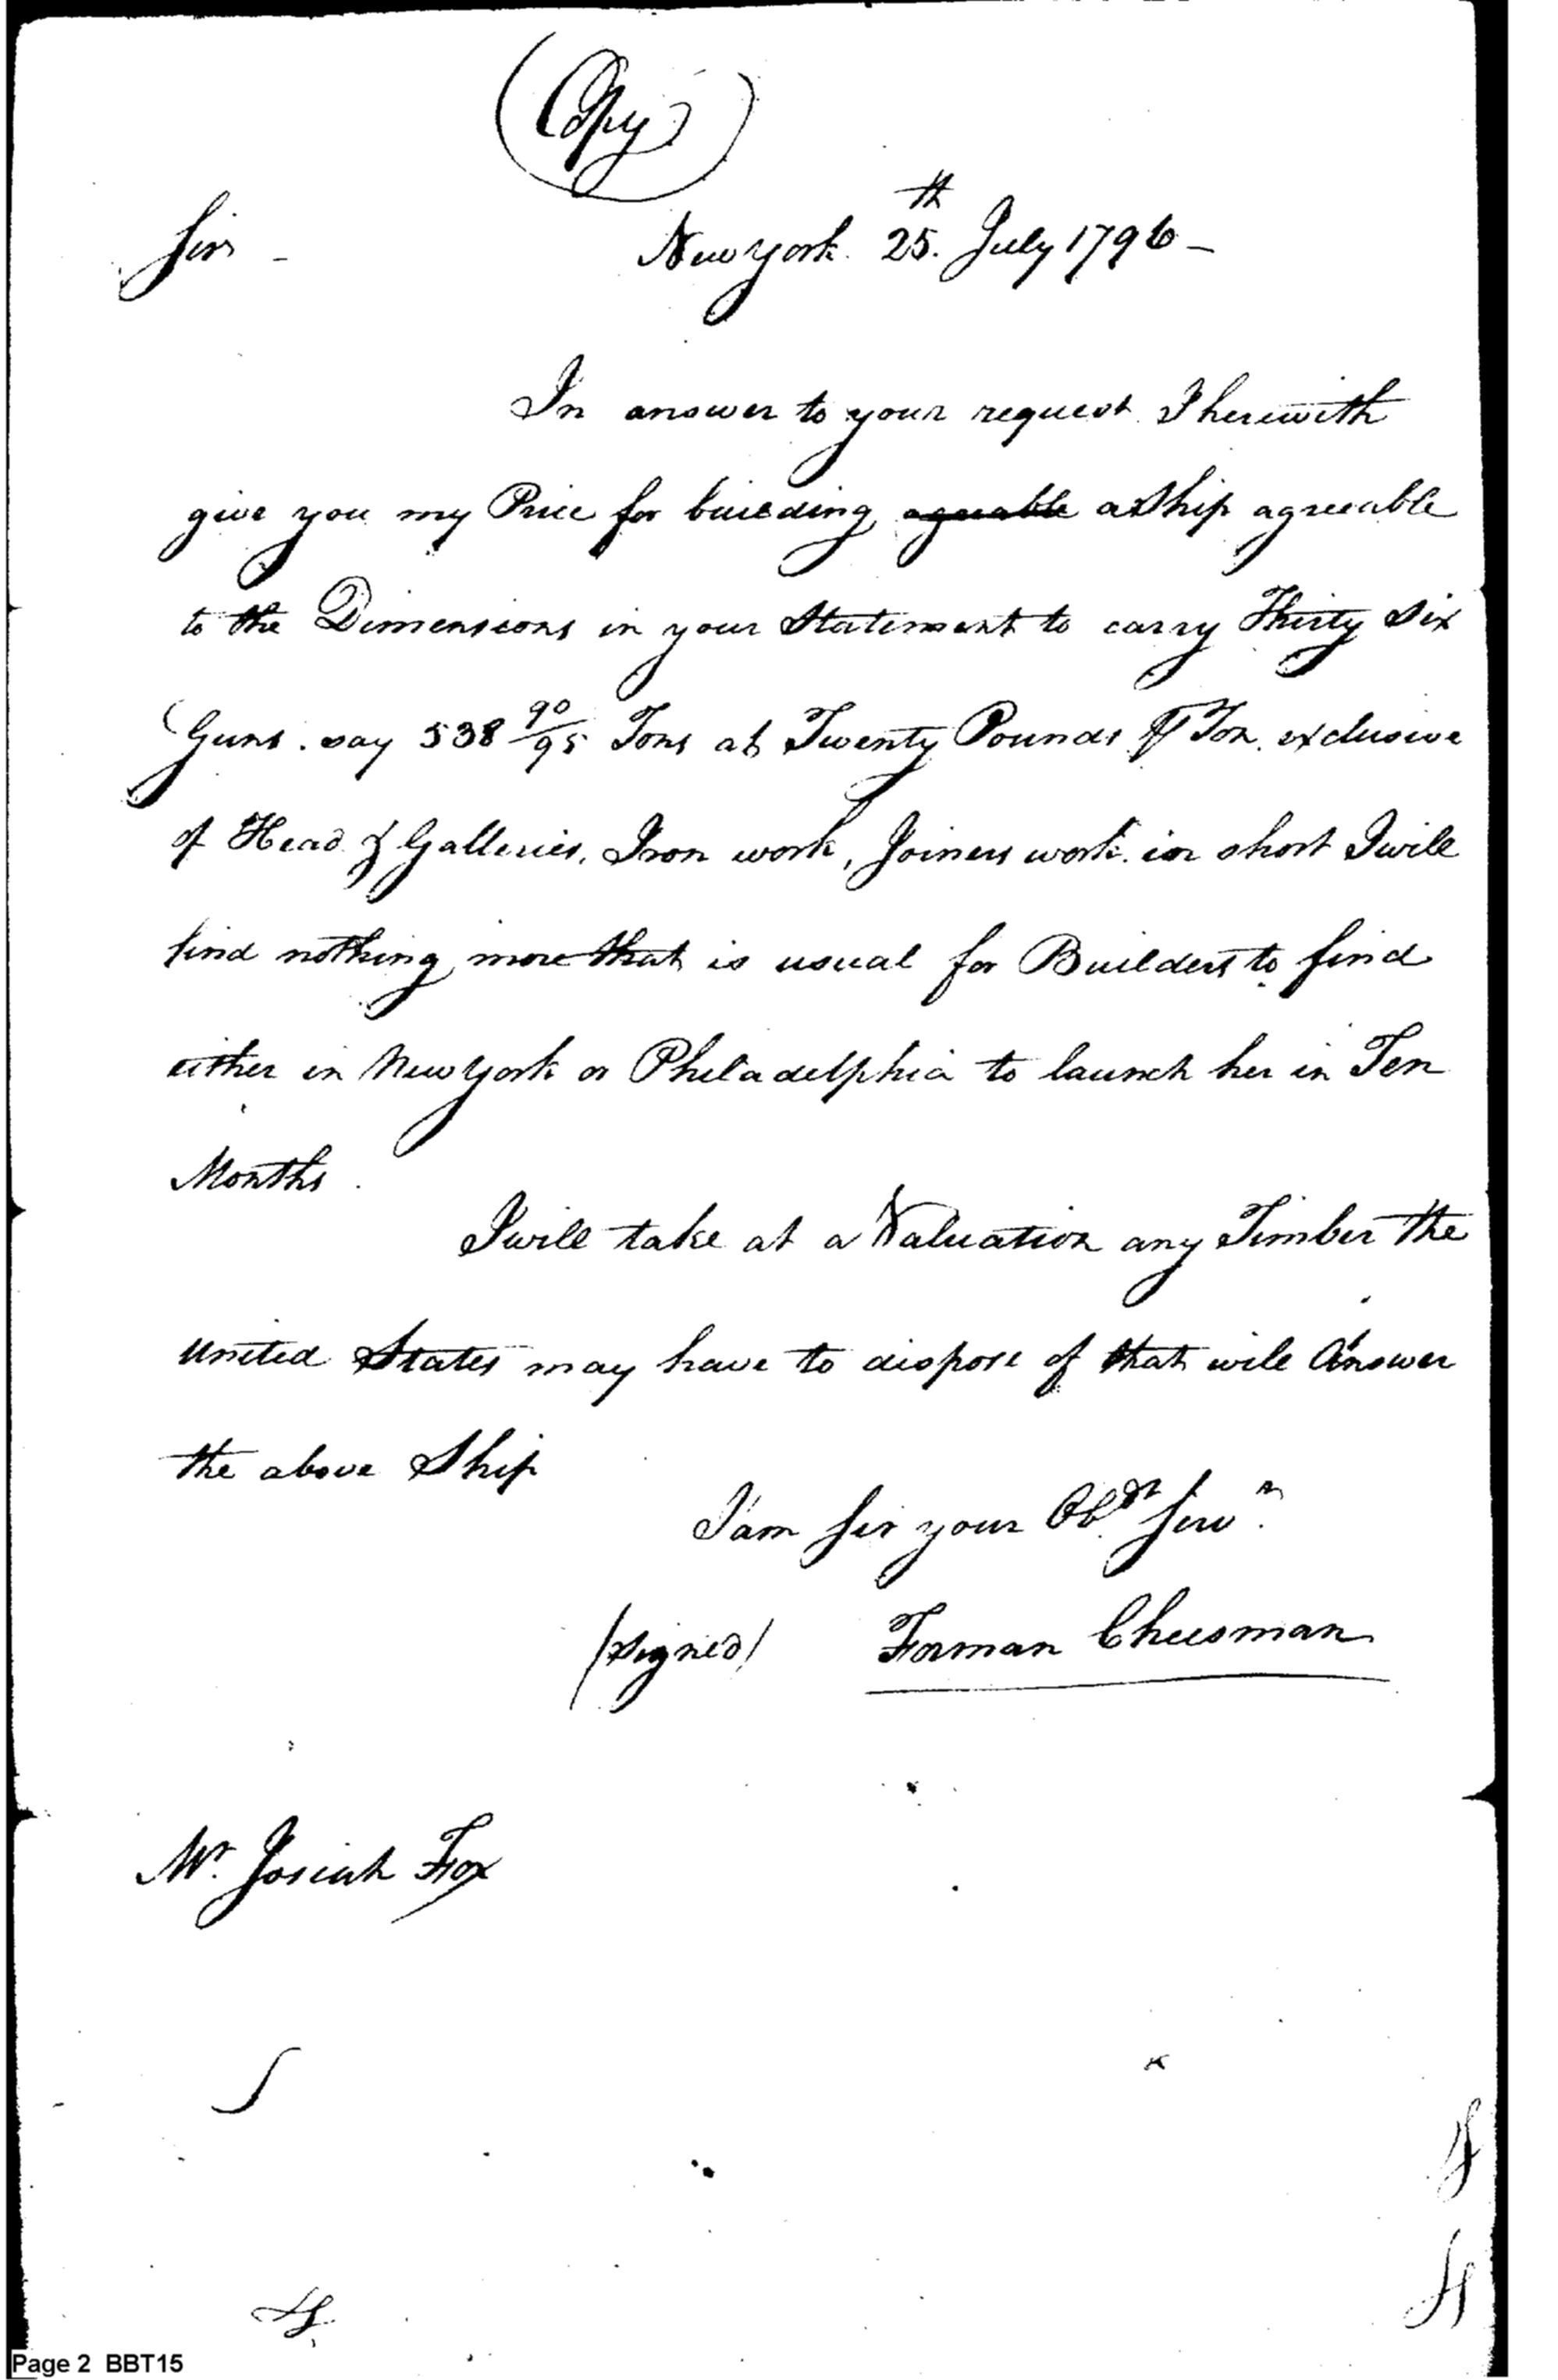 (Copy)
Sir - New York. 25.th July 1796 -
In answer to your request I herewith
give you my Price for building agreable a Ship agreeable
to the Dimensions in your Statement to carry Thirty Six
Guns. say 538 90/95 Tons at Twenty Pounds ⅌ Ton. exclusive
of Head & Galleries, Iron work, Joiners work. in short I will
find nothing more that is usual for Builders to find
either in New York or Philadelphia to launch her in Ten
Months.
I will take at a Valuation any Timber the
United States may have to dispose of that will Answer
the above Ship
I am Sir your Obdt Serv.
(signed) Forman Cheesman
Mr. Josiah Fox
Page 2 BBT15